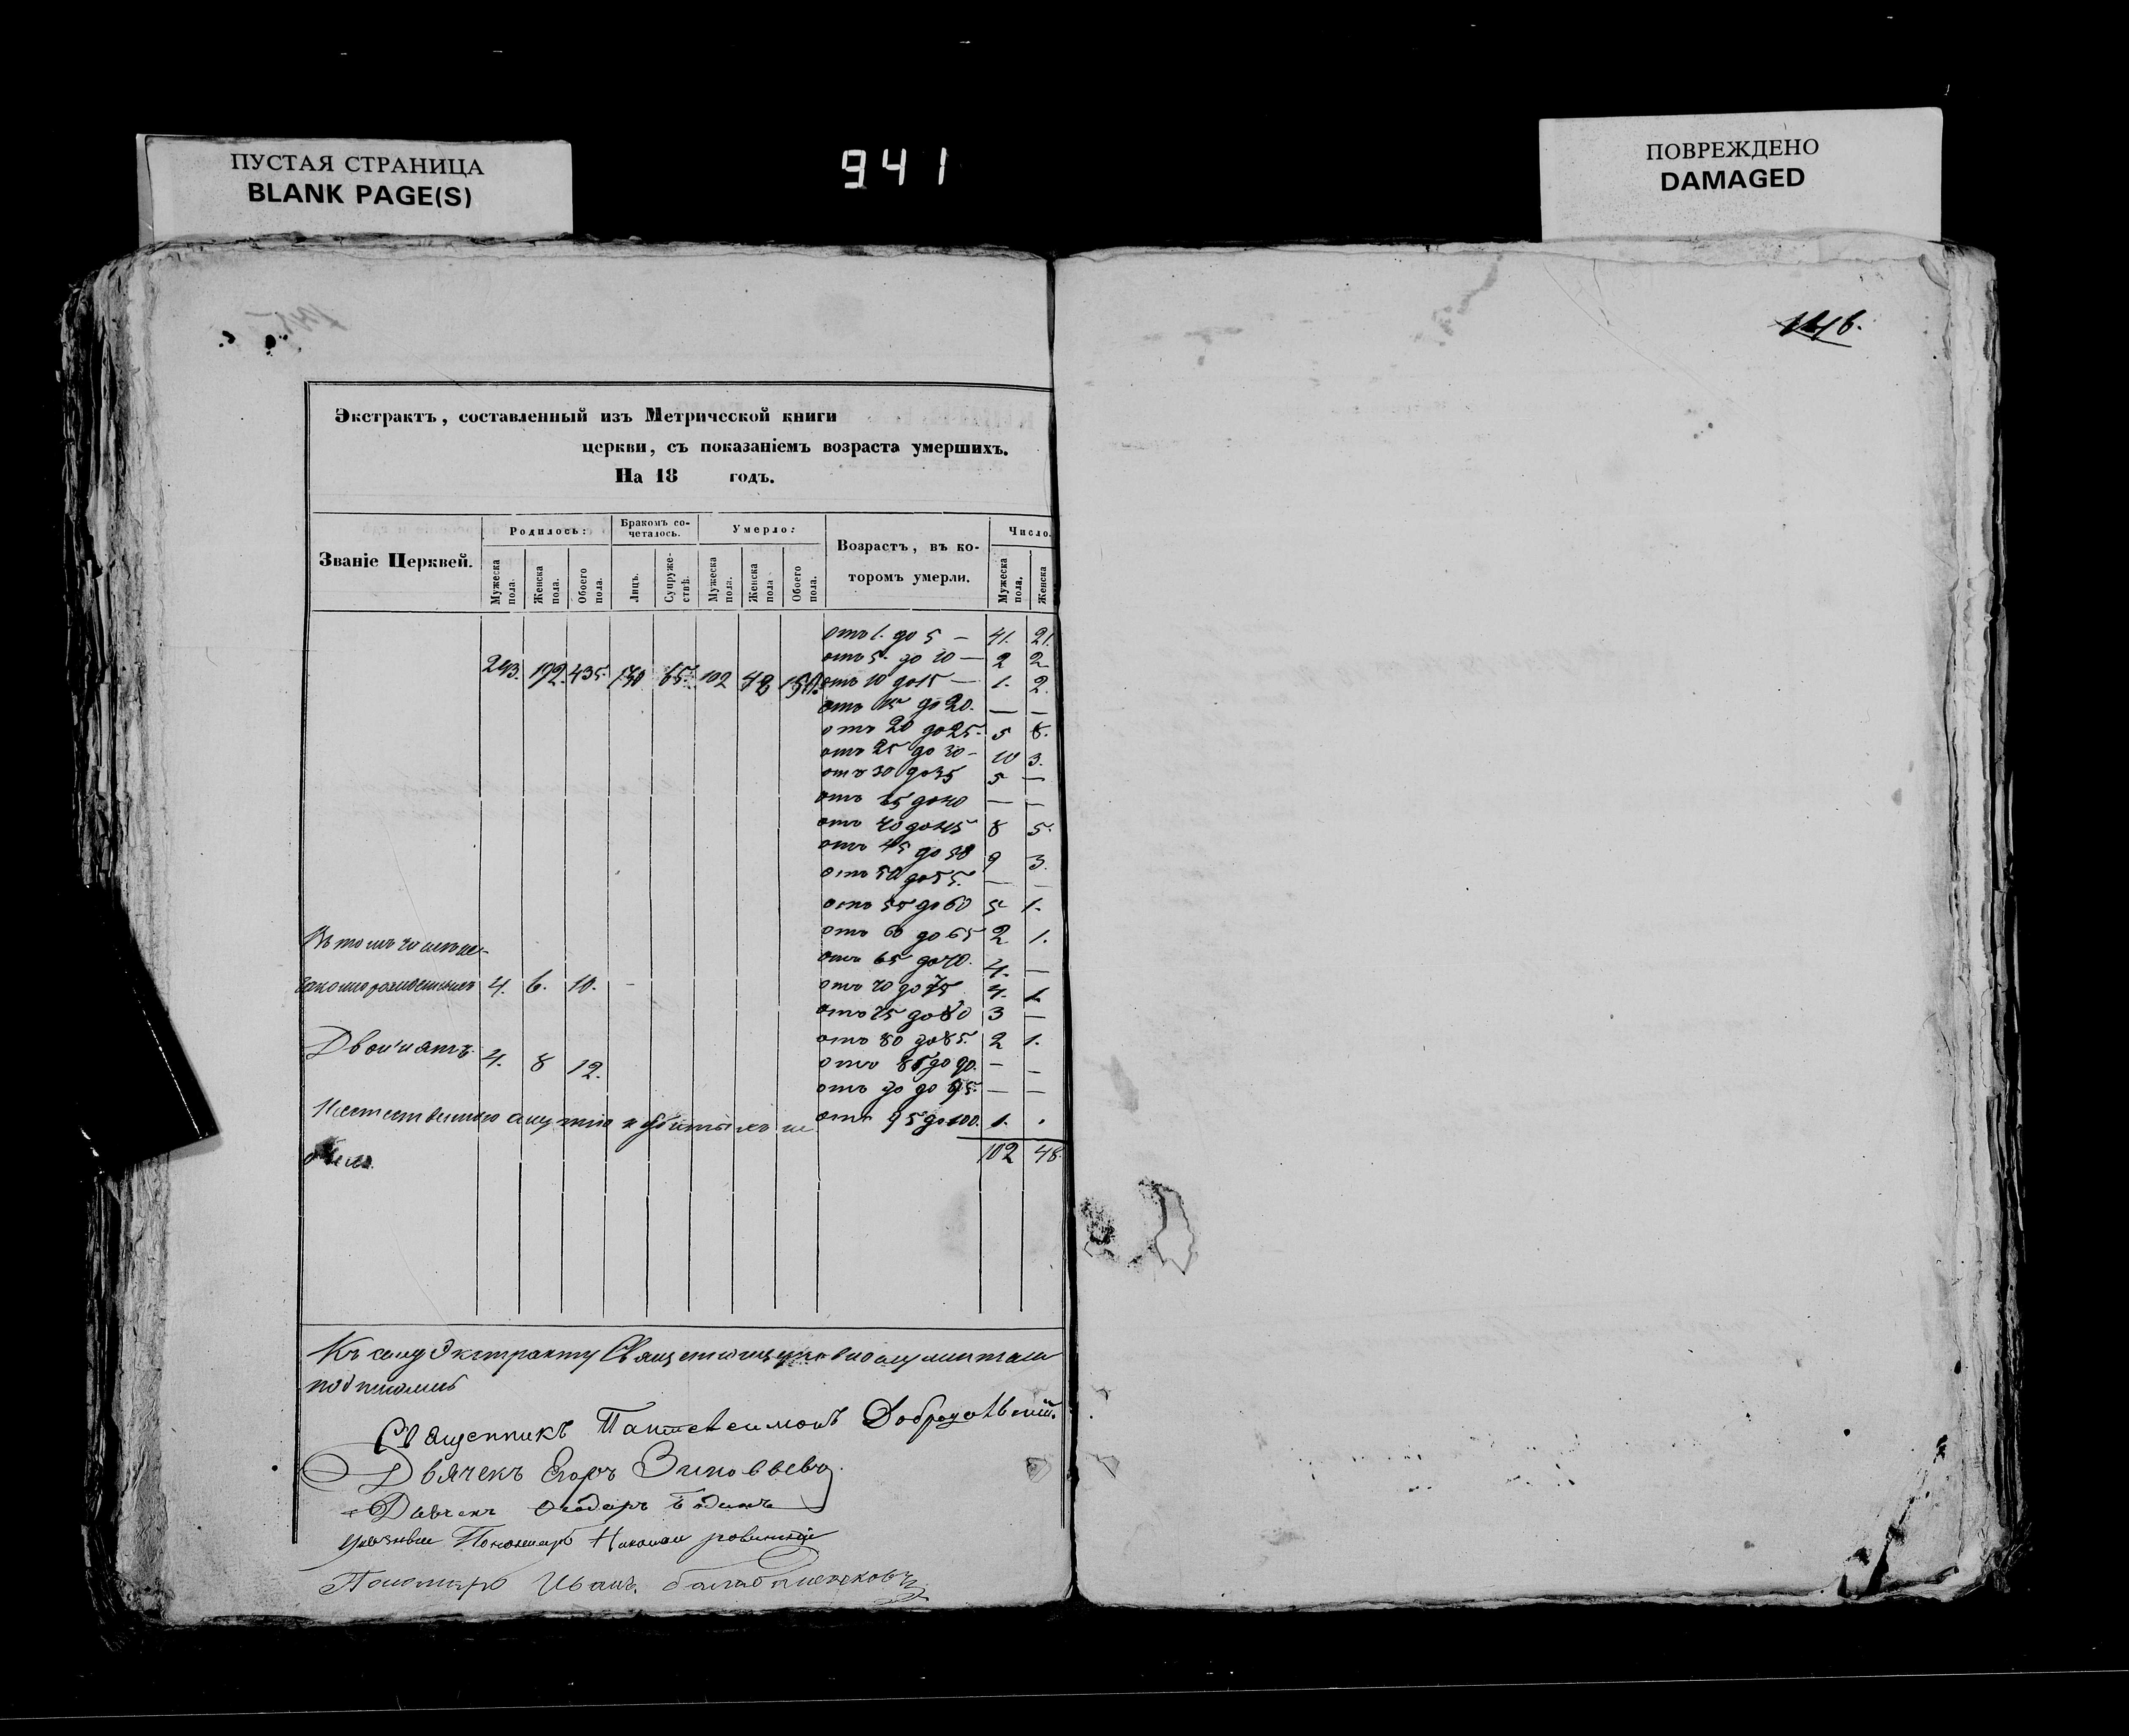 ПУСТАЯ СТРАНИЦА
BLANK PAGE(S)
941
ПОВРЕЖДЕНО
DAMAGED
146.
Экстрактъ, составленный изъ Метрической книги
церкви, съ показаніемъ возраста умершихъ.
На 18 годъ.
Званіе Церквей.
Родилось:
Бракомъ со-
четалось.
Умерло:
Возрастъ, въ ко-
торомъ умерли.
Число.
Мужеска пола.
Женска пола.
Обоего пола.
Лицъ.
Супруже-
ствъ.
Мужеска пола.
Женска пола
Обоего пола.
Мужеска пола.
Женска
243. 192. 435. 130 65. 102 48 150.
отъ 1. до 5 — 41. 21.
отъ 5. до 10 — 2 2
отъ 10 до 15 — 1. 2.
отъ 15 до 20. — —
отъ 20 до 25. 5 8.
отъ 25 до 30 - 10 3.
отъ 30 до 35 5 —
отъ 35 до 40 — —
отъ 40 до 45 8 5.
отъ 45 до 50 9 3.
отъ 50 до 55. — —
отъ 55 до 60 5 1.
отъ 60 до 65 2 1.
отъ 65 до 70. 4. —
отъ 70 до 75 4. 1.
отъ 75 до 80 3 —
отъ 80 до 85. 2 1.
отъ 85 до 90. — —
отъ 90 до 95. — —
отъ 95 до 100. 1. .
102 48.
Въ томъ числѣ не-
законнорожденныхъ 4. 6. 10. -
Двойнятъ 4. 8 12.
Къ сему Экстракту
подписались
Священникъ Пантелеимонъ
Дьячекъ Егоръ Зиновьевъ
Дьячекъ
Пономарь Николай
Пономарь Иванъ